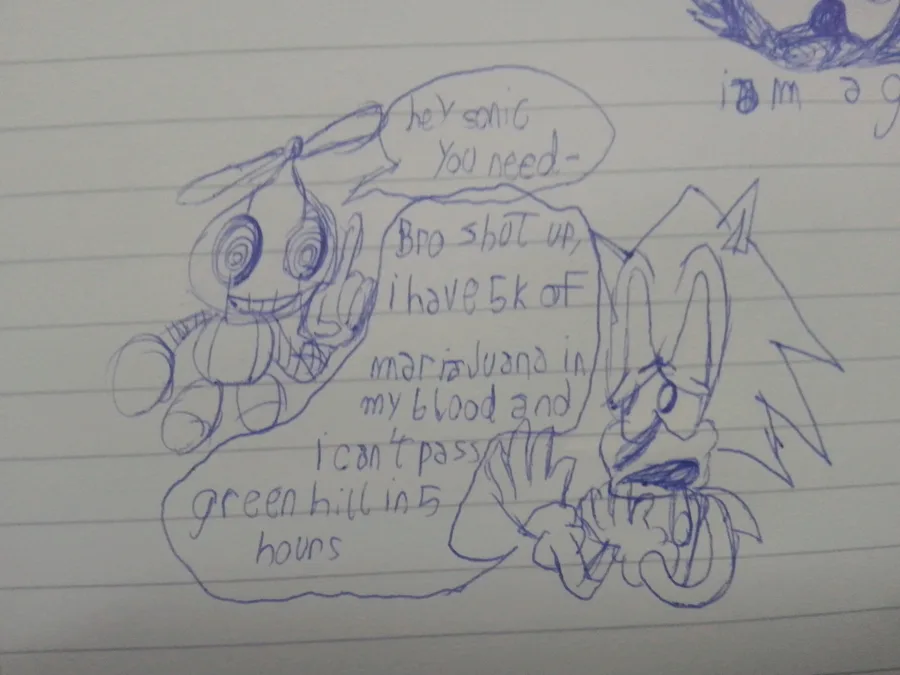 hey sonic
You need-
Bro shut up,
i have 5k of
marijuana in
my blood and
i can't pass
green hill in 5
hours
i am a g